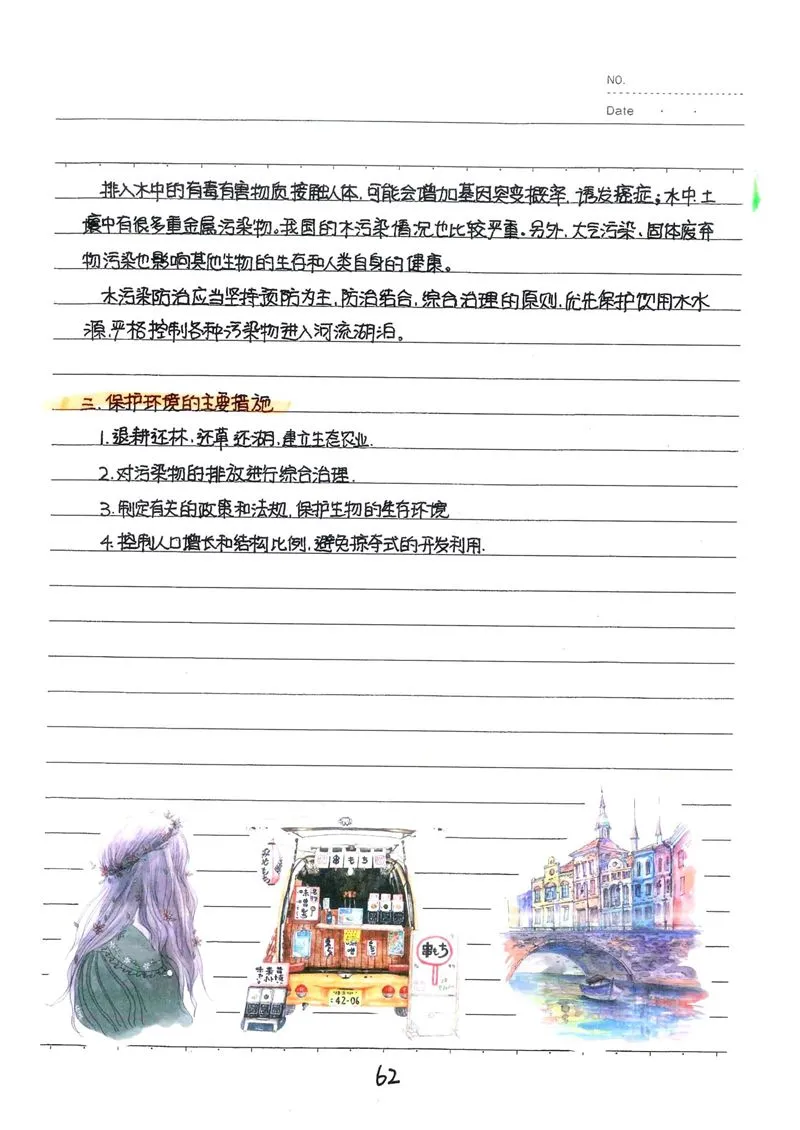 NO.
Date
排入水中的有毒有害物质接触人体,可能会增加基因突变概率,诱发癌症;水中土
壤中有很多重金属污染物。我国的水污染情况也比较严重。另外,大气污染、固体废弃
物污染也影响其他生物的生存和人类自身的健康。
水污染防治应当坚持预防为主,防治结合,综合治理的原则,优先保护饮用水水
源,严格控制各种污染物进入河流湖泊。
三.保护环境的主要措施
1.退耕还林,还草还湖,建立生态农业.
2.对污染物的排放进行综合治理.
3.制定有关的政策和法规,保护生物的生存环境
4.控制人口增长和结构比例,避免掠夺式的开发利用.
串もち
串もち
42-06
62